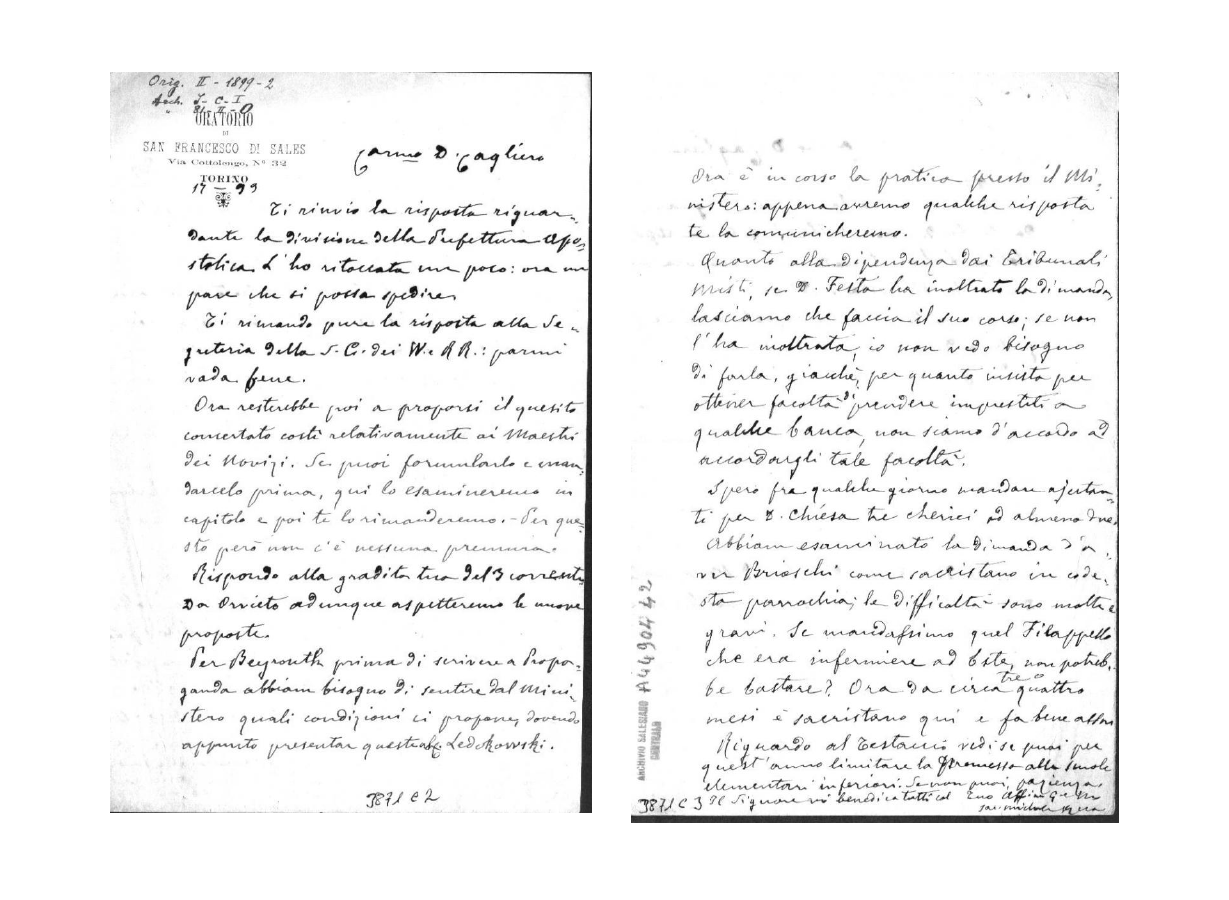 Orig. II - 1899 - 2
Arch. I - C - I
ORATORIO
DI
SAN FRANCESCO DI SALES
Via Cottolengo, Nº 32
TORINO
Carmo D. Cagliero
Ti rinvio la risposta riguar-
dante la divisione della Prefettura Apo-
stolica. L'ho ritoccata un poco: ora mi
pare che si possa spedire.
Ti rimando pure la risposta alla Se-
greteria della S. C. dei VV. e RR.: parmi
vada bene.
Ora resterebbe poi a proporsi il quesito
concertato costì relativamente ai Maestri
dei Novizi. Se puoi formularlo e man-
darcelo prima, qui lo esamineremo in
capitolo e poi te lo rimanderemo. - Per que-
sto però non c'è nessuna premura.
Rispondo alla gradita tua del 3 corrente
Da Orvieto adunque aspetteremo le nuove
proposte.
Per Beyrouth prima di scrivere a Propa-
ganda abbiam bisogno di sentire dal Mini-
stero quali condizioni ci propone, dovendo
appunto presentar queste al C. Ledokowski.
3871 C 2
Ora è in corso la pratica presso il Mi-
nistero: appena avremo qualche risposta
te la comunicheremo.
Quanto alla dipendenza dai Tribunali
Misti, se D. Festa ha inoltrato la dimanda,
lasciamo che faccia il suo corso; se non
l'ha inoltrata, io non vedo bisogno
di farla, giacchè, per quanto insista per
ottener facoltà di prendere imprestiti a
qualche banca, non siamo d'accordo ad
accordargli tale facoltà.
Spero fra qualche giorno mandare ajutan-
ti per D. Chiesa tre cherici od almeno due.
Abbiam esaminato la dimanda d'a-
ver Brioschi come sacristano in code-
sta parrochia; le difficoltà sono molte e
gravi. Se mandassimo quel Filappello
che era infermiere ad Este, non potreb-
be bastare? Ora da circa tre o quattro
mesi è sacristano qui e fa bene assai
Riguardo al Testaccio vedi se puoi per
quest'anno limitare la promessa alle scuole
elementari inferiori. Se non puoi, pazienza.
Il Signore vi benedica tutti ed Tuo Aff. in G. e M.
Sac. Michele Rua
3871 C 3
ARCHIVIO SALESIANO
CENTRALE
A4490442